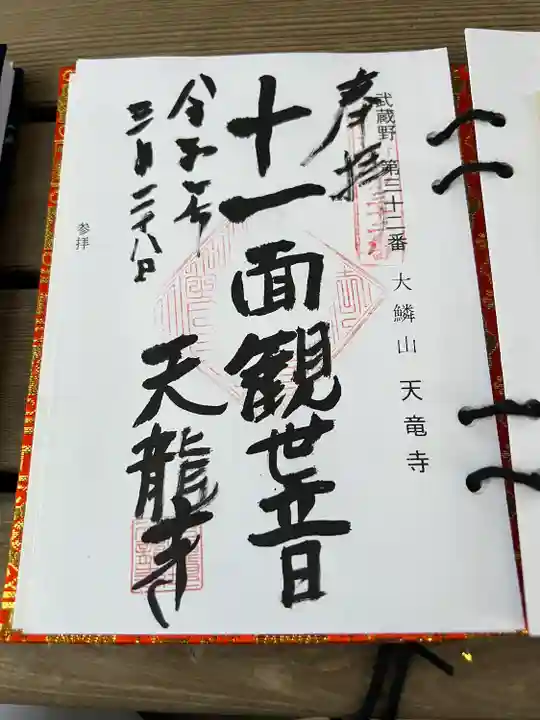 武蔵野 第三十二番 大鱗山 天竜寺
奉拝
十一面観世音
三月二十八日
天龍寺
参拝